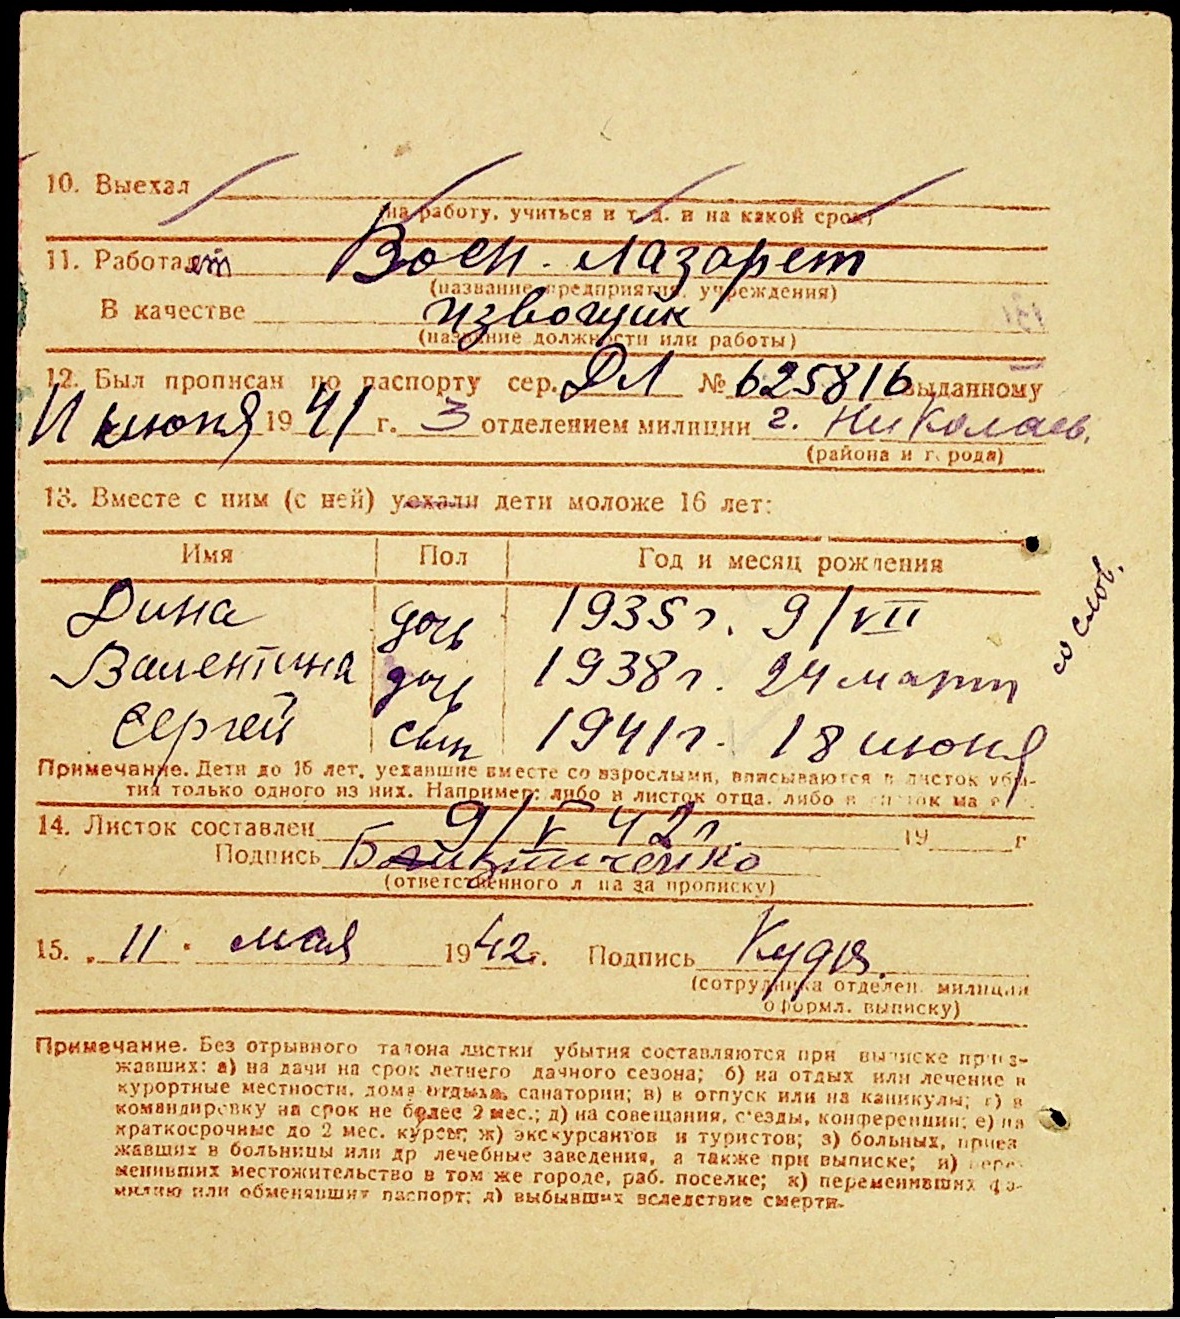 10. Выехал
(на работу, учиться и т. д. и на какой срок)
11. Работает Воен. Лазарет
(название предприятия, учреждения)
В качестве извощик
(название должности или работы)
12. Был прописан по паспорту сер. ДЛ № 625816 выданному
11 июня 1941 г. 3 отделением милиции г. Николаев.
(района и города)
13. Вместе с ним (с ней) уехали дети моложе 16 лет:
Имя Пол Год и месяц рождения
Дина дочь 1935 г. 9/VII
Валентина дочь 1938 г. 24 март
Сергей сын 1941 г. 18 июня
со слов.
Примечание. Дети до 16 лет, уехавшие вместе со взрослыми, вписываются в листок убы-
тия только одного из них. Например: либо в листок отца, либо в листок
14. Листок составлен 9/V 42 г. 19 г
Подпись
(ответственного лица за прописку)
15. „ 11 " мая 1942 г. Подпись
(сотрудника отделен. милиции
оформл. выписку)
Примечание. Без отрывного талона листки убытия составляются при выписке приез-
жавших: а) на дачи на срок летнего дачного сезона; б) на отдых или лечение в
курортные местности, дома отдыха, санатории; в) в отпуск или на каникулы; г) в
командировку на срок не более 2 мес.; д) на совещания, с'езды, конференции; е) на
краткосрочные до 2 мес. курсы; ж) экскурсантов и туристов; з) больных, приез
жавших в больницы или др лечебные заведения, а также при выписке; и) пере-
менивших местожительство в том же городе, раб. поселке; к) переменивших фа-
милию или обменявших паспорт; л) выбывших вследствие смерти.